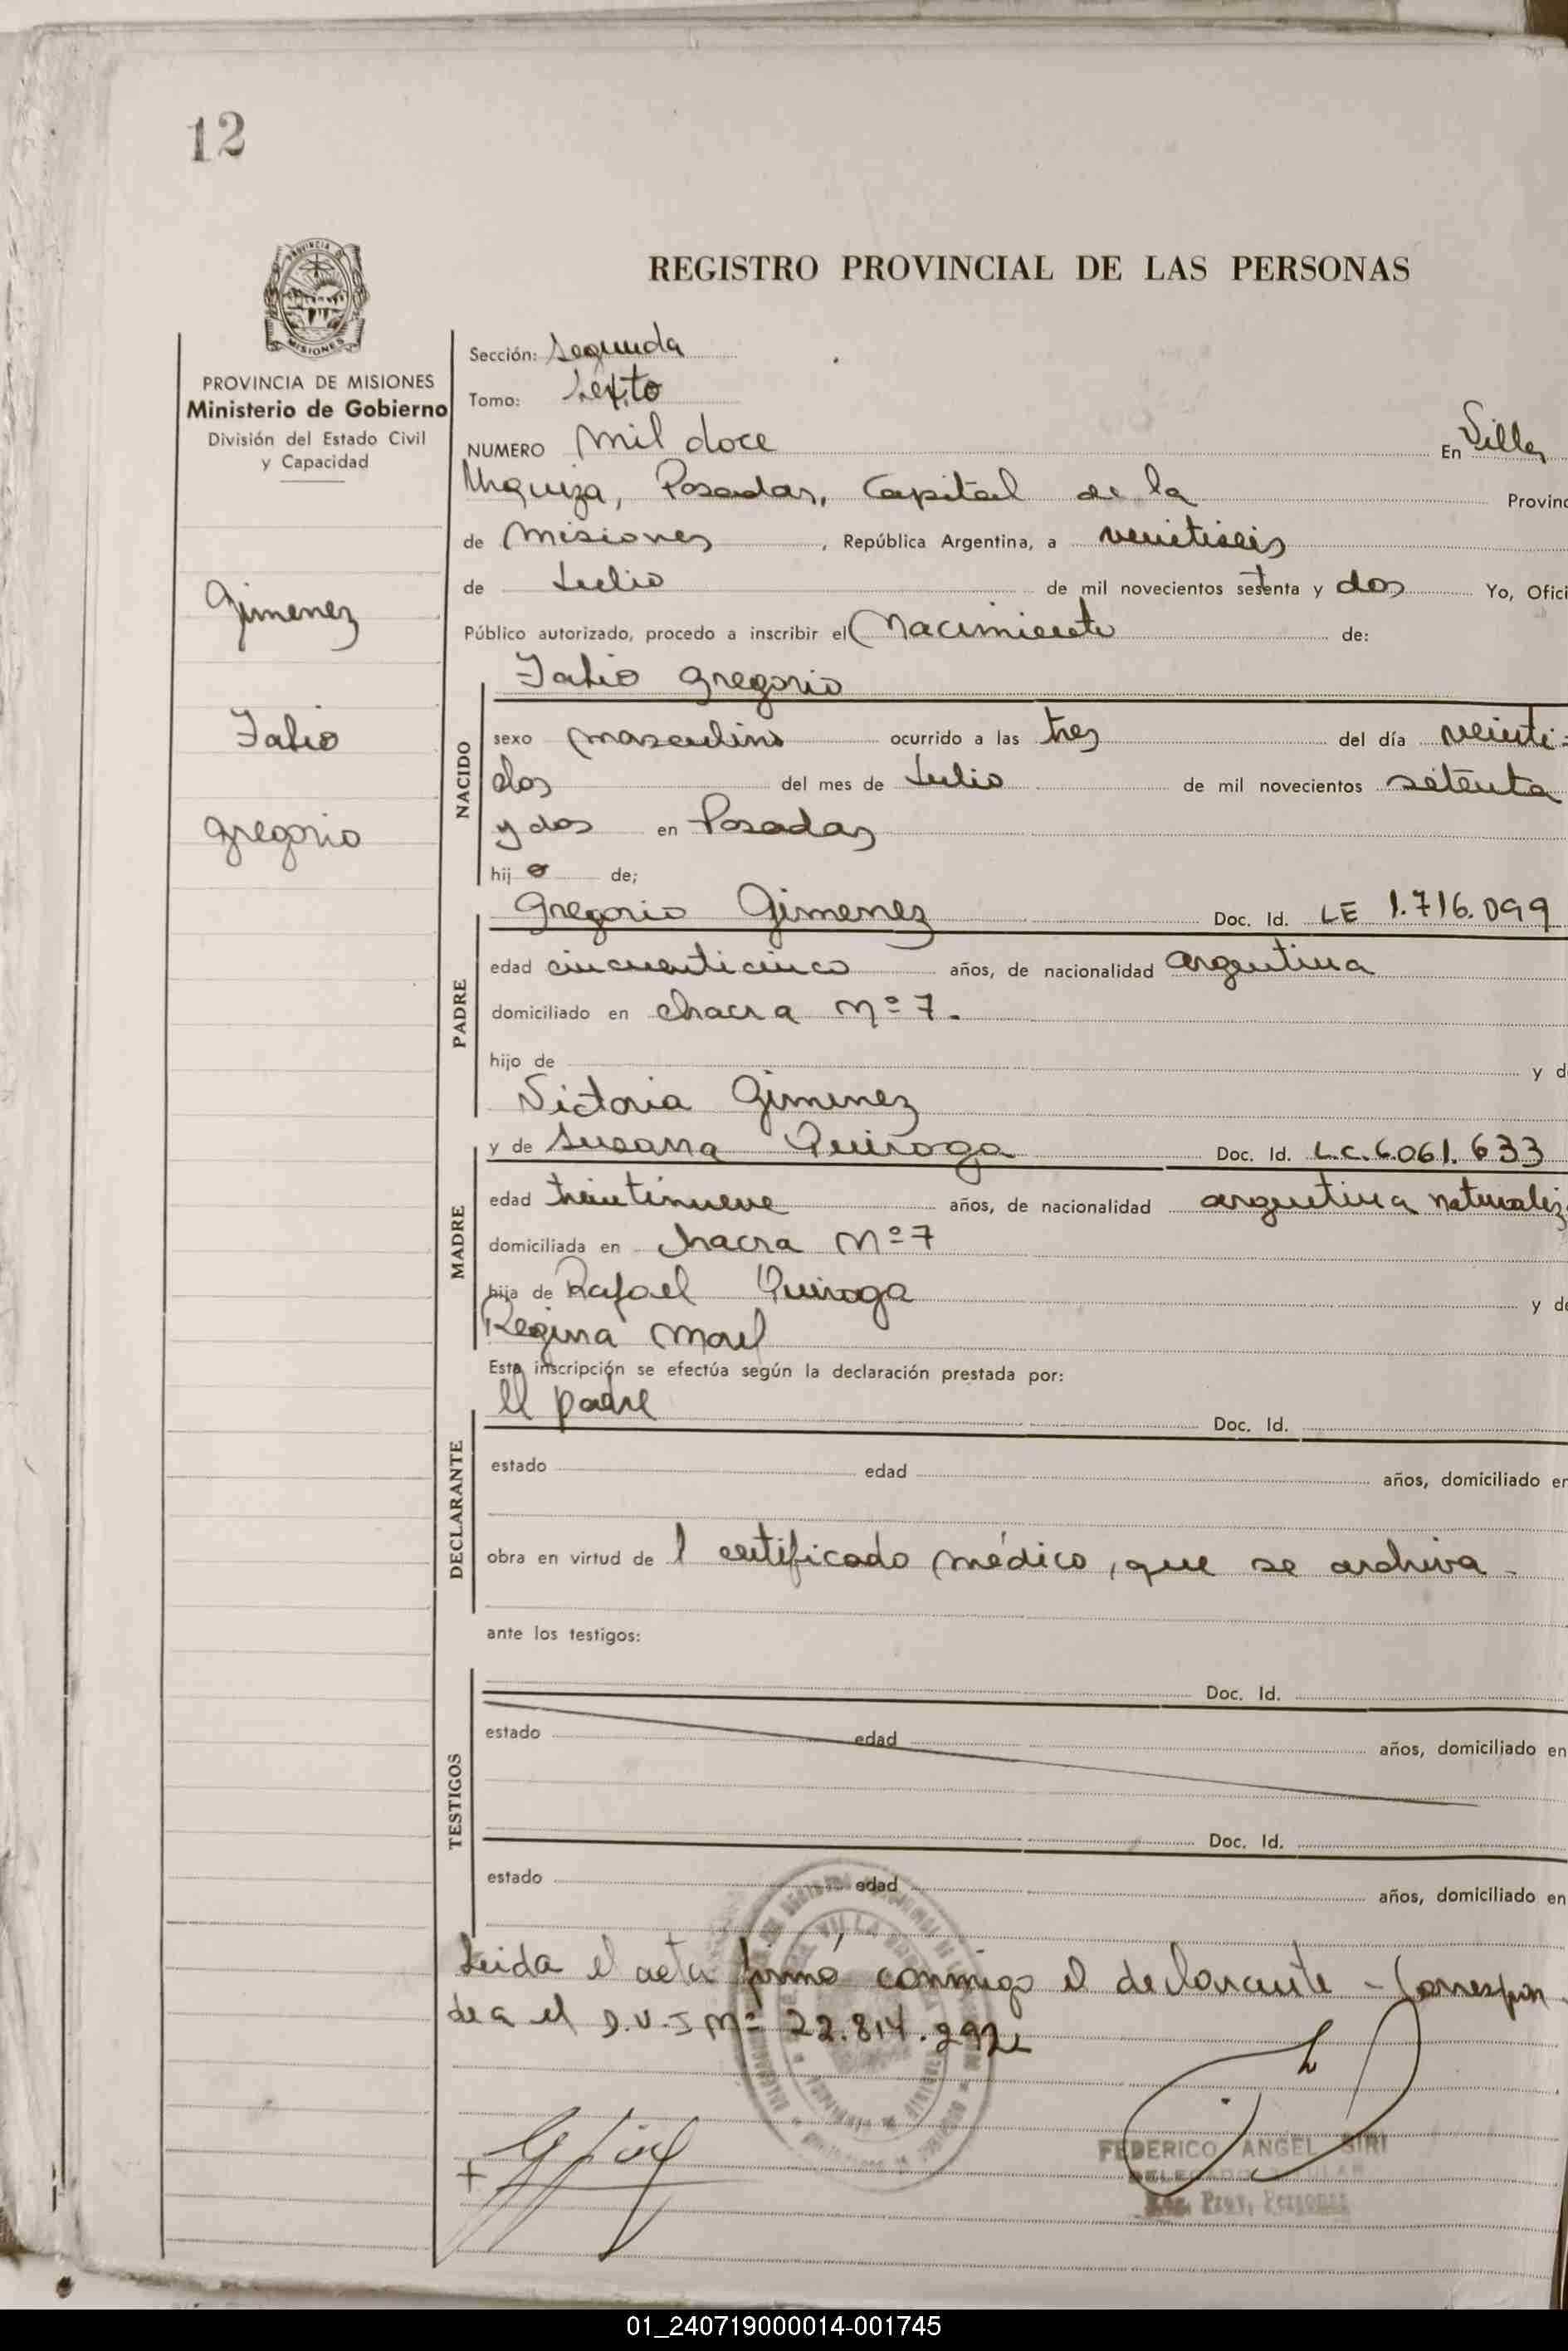 12
REGISTRO PROVINCIAL DE LAS PERSONAS
PROVINCIA DE MISIONES
Ministerio de Gobierno
División del Estado Civil
y Capacidad
Gimenez
Fabio
Gregorio
Sección: Segunda
Tomo: Sexto
NUMERO Mil doce En Villa
Urquiza, Posadas, Capital de la Provinc
de Misiones, República Argentina, a veintiseis
de Julio de mil novecientos setenta y dos Yo, Ofici
Público autorizado, procedo a inscribir el Nacimiento de:
NACIDO
Fabio Gregorio
sexo masculino ocurrido a las tres del día veinti=
dos del mes de Julio de mil novecientos setenta
y dos en Posadas
hij o de;
PADRE
Gregorio Gimenez Doc. Id. LE 1.716.099
edad cincuenticinco años, de nacionalidad argentina
domiciliado en chacra Nº 7.
hijo de y d
Victoria Gimenez
MADRE
y de Susana Quiroga Doc. Id. L.C. 6.061.633
edad treintinueve años, de nacionalidad argentina naturaliz
domiciliada en chacra Nº 7
hija de Rafael Quiroga y de
Regina Morel
Esta inscripción se efectúa según la declaración prestada por:
DECLARANTE
El padre Doc. Id.
estado edad años, domiciliado en
obra en virtud de l certificado médico, que se archiva.
ante los testigos:
TESTIGOS
Doc. Id.
estado edad años, domiciliado en
Doc. Id.
estado edad años, domiciliado en
Leida el acta firmó conmigo el declarante - Correspon
de a el D.U.I Nº 22.814.292
FEDERICO ANGEL SIRI
DELEGADO TITULAR
Reg. Prov. Personas
01_240719000014-001745